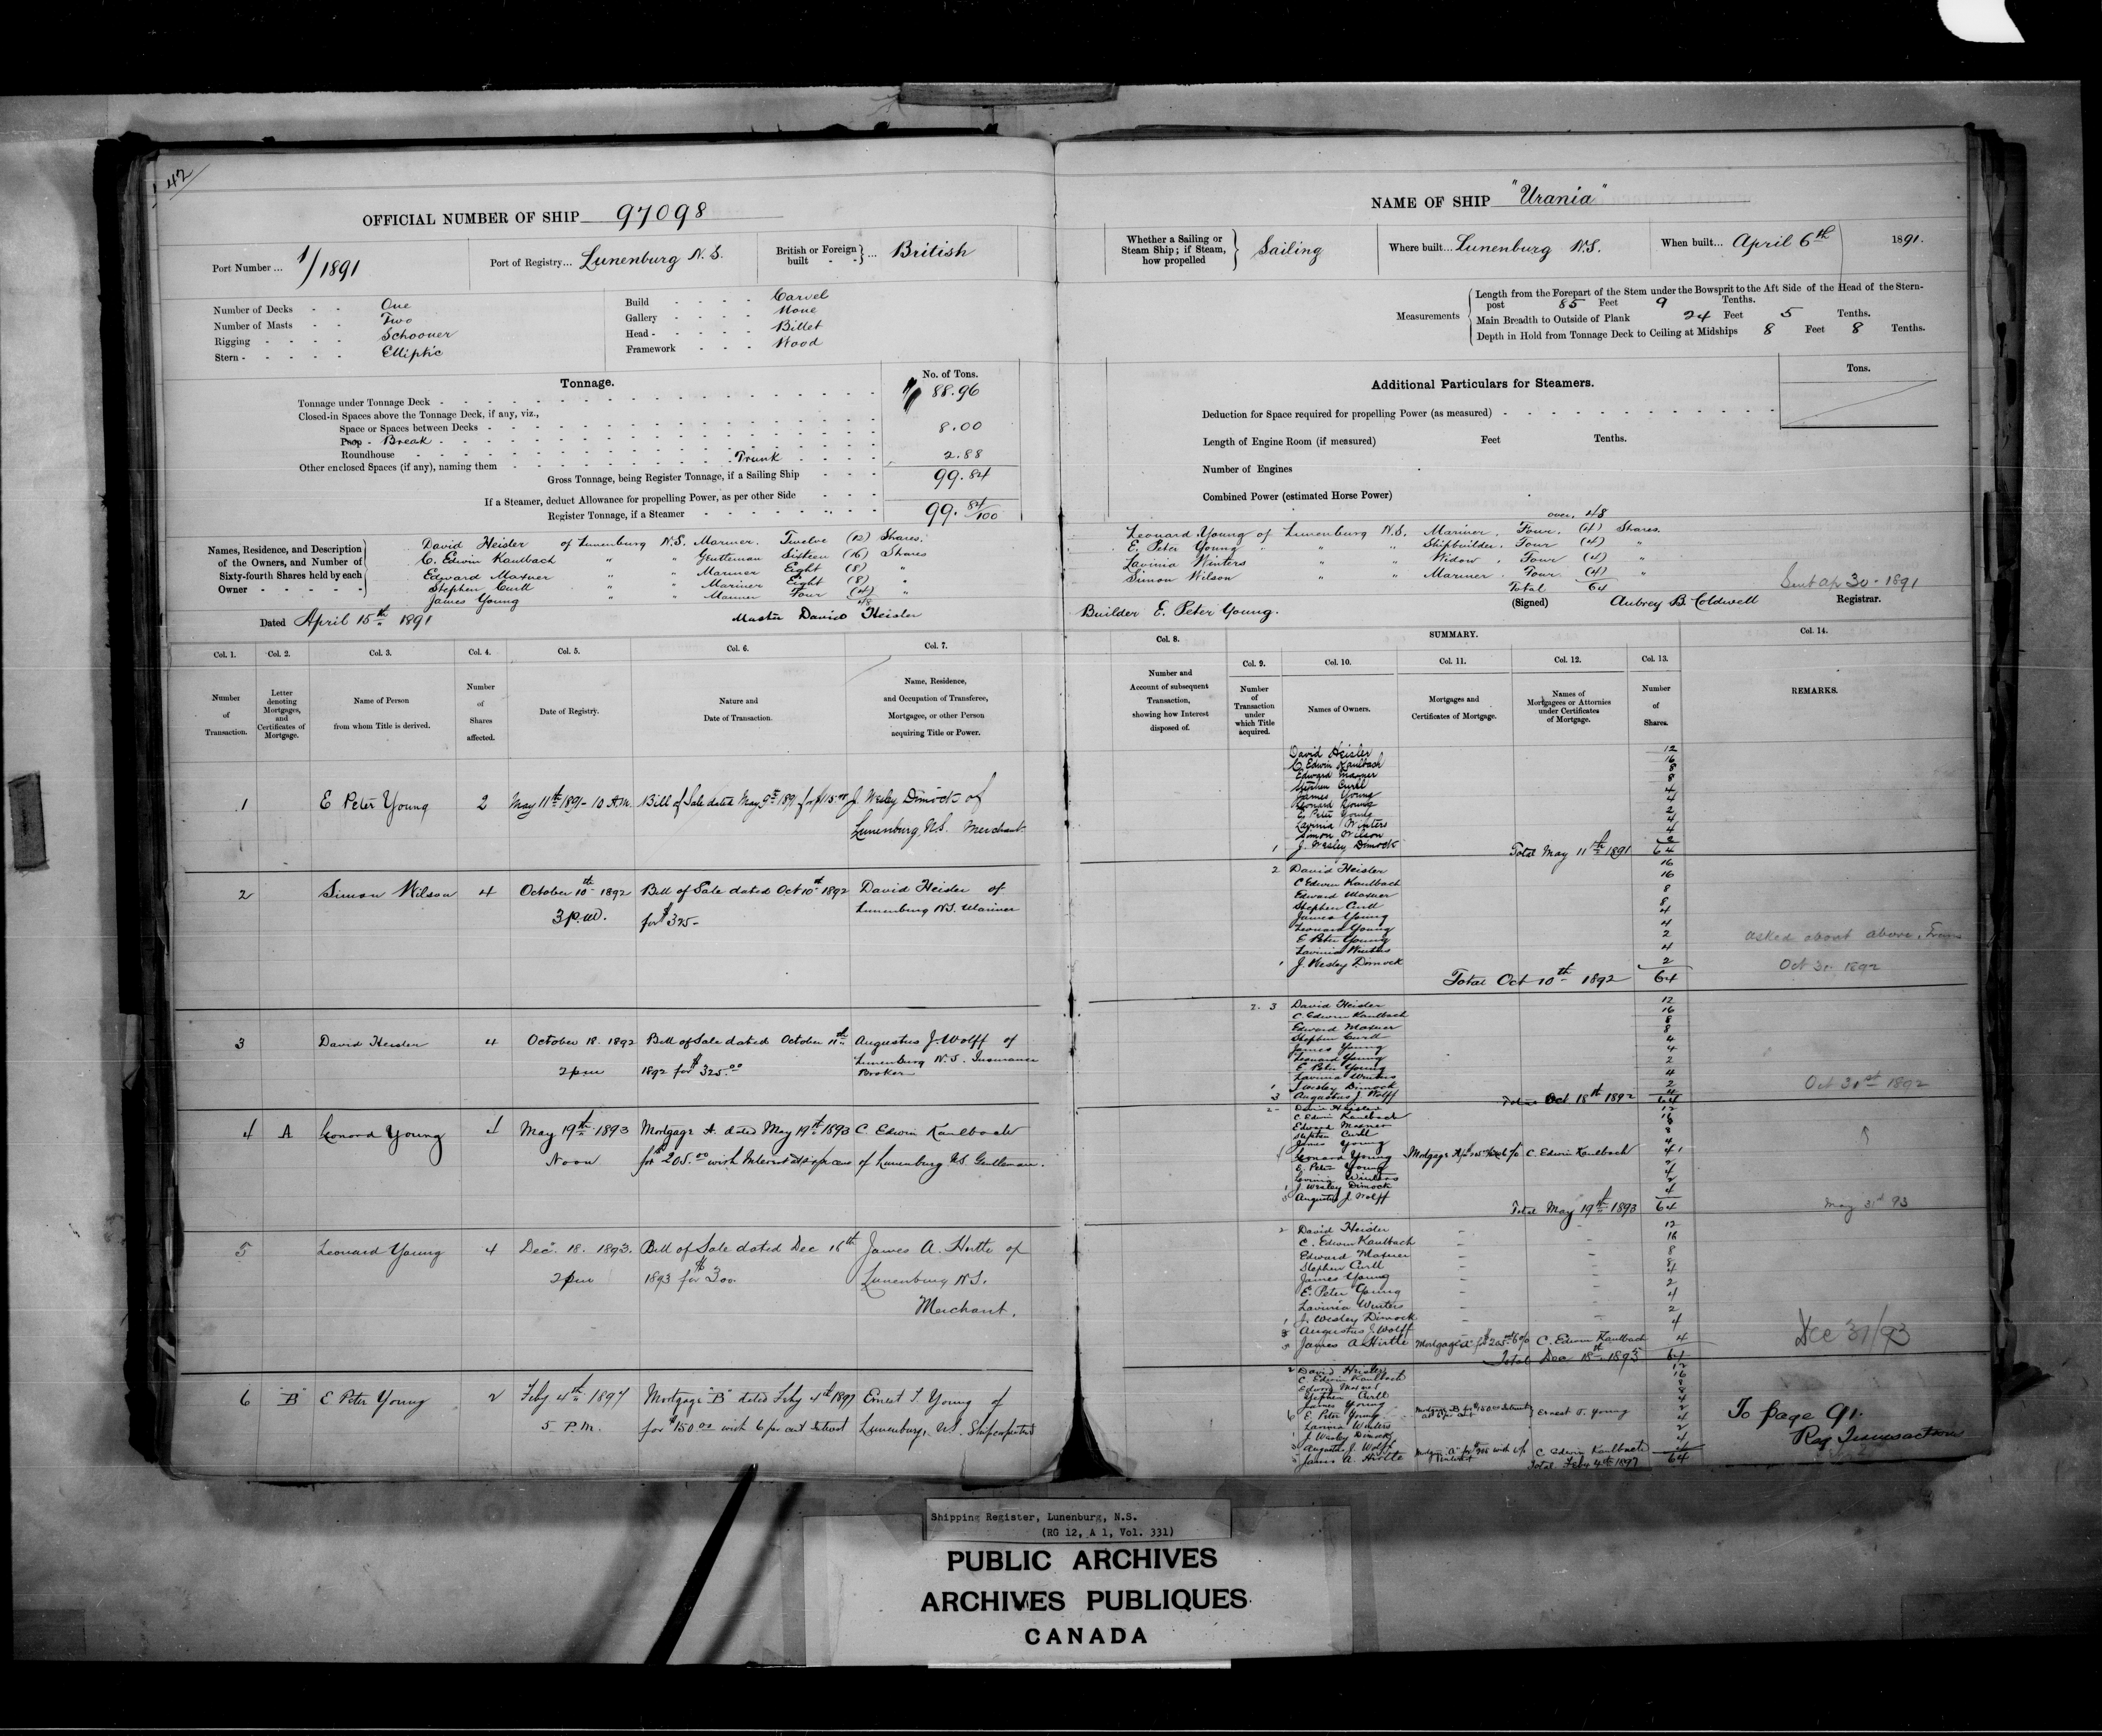 42
OFFICIAL NUMBER OF SHIP 97098
Port Number ... 1/1891
Port of Registry... Lunenburg N.S.
British or Foreign built - - } ... British
Number of Decks - - One
Number of Masts - - Two
Rigging - - - - Schooner
Stern - - - - - Elliptic
Build - - - - Carvel
Gallery - - - - None
Head - - - - - Billet
Framework - - - Wood
Tonnage.
No. of Tons.
Tonnage under Tonnage Deck 88.96
Closed-in Spaces above the Tonnage Deck, if any, viz.,
Space or Spaces between Decks
Poop - Break 8.00
Roundhouse
Other enclosed Spaces (if any), naming them Trunk 2.88
Gross Tonnage, being Register Tonnage, if a Sailing Ship 99.84
If a Steamer, deduct Allowance for propelling Power, as per other Side
Register Tonnage, if a Steamer 99.84/100
Names, Residence, and Description of the Owners, and Number of Sixty-fourth Shares held by each Owner
David Heisler of Lunenburg N.S. Mariner. Twelve (12) Shares.
C. Edwin Kaulbach " " Gentleman Sixteen (16) Shares
Edward Maxner " " Mariner Eight (8) "
Stephen Curll " " Mariner Eight (8) "
James Young " " Mariner Four (4) "
48
Dated April 15th 1891
Master David Heisler
NAME OF SHIP "Urania"
Whether a Sailing or Steam Ship; if Steam, how propelled } Sailing
Where built... Lunenburg N.S.
When built... April 6th 1891.
Measurements
Length from the Forepart of the Stem under the Bowsprit to the Aft Side of the Head of the Stern-
post 85 Feet 9 Tenths.
Main Breadth to Outside of Plank 24 Feet 5 Tenths.
Depth in Hold from Tonnage Deck to Ceiling at Midships 8 Feet 8 Tenths.
Additional Particulars for Steamers.
Tons.
Deduction for Space required for propelling Power (as measured)
Length of Engine Room (if measured) Feet Tenths.
Number of Engines
Combined Power (estimated Horse Power)
over, 48
Leonard Young of Lunenburg N.S. Mariner. Four. (4) Shares.
E. Peter Young " " " Shipbuilder. Four (4) "
Lavinia Winters " " Widow. Four (4) "
Simon Wilson " " Mariner. Four. (4) "
Total 64
Sent Ap 30 - 1891
Builder E. Peter Young.
(Signed) Aubrey B. Coldwell Registrar.
Col. 1. Col. 2. Col. 3. Col. 4. Col. 5. Col. 6. Col. 7.
Number of Transaction.
Letter denoting Mortgages, and Certificates of Mortgage.
Name of Person from whom Title is derived.
Number of Shares affected.
Date of Registry.
Nature and Date of Transaction.
Name, Residence, and Occupation of Transferee, Mortgagee, or other Person acquiring Title or Power.
1 E Peter Young 2 May 11th 1891 - 10 A.M. Bill of Sale dated May 9th 1891 for J. Wesley Dimock of
Lunenburg N.S. Merchant
2 Simon Wilson 4 October 10th 1892 Bill of Sale dated Oct 10th 1892 David Heisler of
3 p.m. for $325- Lunenburg N.S. Mariner
3 David Heisler 4 October 18. 1892 Bill of Sale dated October 11th Augustus J. Wolff of
2 pm 1892 for $325.00 Lunenburg N.S. Insurance
Broker
4 A Leonard Young 4 May 19th 1893 Mortgage A. dated May 19th 1893 C. Edwin Kaulbach
Noon for $205.00 with Interest at six per cent of Lunenburg N.S. Gentleman.
5 Leonard Young 4 Dec. 18. 1893. Bill of Sale dated Dec 16th James A. Hirtle of
2 pm 1893 for $300. Lunenburg N.S.
Merchant.
6 "B" E Peter Young 2 Feby 4th 1897 Mortgage "B" dated Feby 4th 1897 Ernest T. Young of
5 P.M. for $150.00 with 6 per cent Interest Lunenburg, N.S. Shipcarpenter
SUMMARY.
Col. 8. Col. 9. Col. 10. Col. 11. Col. 12. Col. 13. Col. 14.
Number and Account of subsequent Transaction, showing how Interest disposed of.
Number of Transaction under which Title acquired.
Names of Owners.
Mortgages and Certificates of Mortgage.
Names of Mortgagees or Attornies under Certificates of Mortgage.
Number of Shares.
REMARKS.
David Heisler 12
C Edwin Kaulbach 16
Edward Maxner 8
Stephen Curll 8
James Young 4
Leonard Young 4
E. Peter Young 2
Lavinia Winters 4
Simon Wilson 4
1 J. Wesley Dimock 2
Total May 11th 1891 64
2 David Heisler 16
C Edwin Kaulbach 16
Edward Maxner 8
Stephen Curll 8
James Young 4
Leonard Young 4
E Peter Young 2
Lavinia Winters 4
1 J. Wesley Dimock 2
Total Oct 10th 1892 64
asked about above.
Oct 31 1892
2. 3 David Heisler 12
C. Edwin Kaulbach 16
Edward Maxner 8
Stephen Curll 8
James Young 4
Leonard Young 4
E Peter Young 2
Lavinia Winters 4
1 J Wesley Dimock 2
3 Augustus J Wolff 4
Total Oct 18th 1892 64
Oct 31st 1892
2 David Heisler 12
C Edwin Kaulbach 16
Edward Maxner 8
Stephen Curll 8
James Young 4
Leonard Young Mortgage A C. Edwin Kaulbach 4
E. Peter Young 2
Lavinia Winters 4
1 J. Wesley Dimock 2
3 Augustus J. Wolff 4
Total May 19th 1893 64
May 31st 93
2 David Heisler 12
C. Edwin Kaulbach 16
Edward Maxner 8
Stephen Curll 8
James Young 4
E. Peter Young 2
Lavinia Winters 4
1 J. Wesley Dimock 2
3 Augustus J. Wolff 4
5 James A Hirtle Mortgage A C. Edwin Kaulbach 4
Total Dec 18th 1893 64
Dec 31/93
2 David Heisler 12
C. Edwin Kaulbach 16
Edward Maxner 8
Stephen Curll 8
James Young 4
6 E. Peter Young Mortgage B for $150.00 Interest Ernest T. Young 2
Lavinia Winters 4
1 J. Wesley Dimock 2
3 Augustus J. Wolff 4
5 James A. Hirtle C Edwin Kaulbach 4
Total Feby 4th 1897 64
To page 91.
Reg Transactions
Shipping Register, Lunenburg, N.S.
(RG 12, A 1, Vol. 331)
PUBLIC ARCHIVES
ARCHIVES PUBLIQUES
CANADA